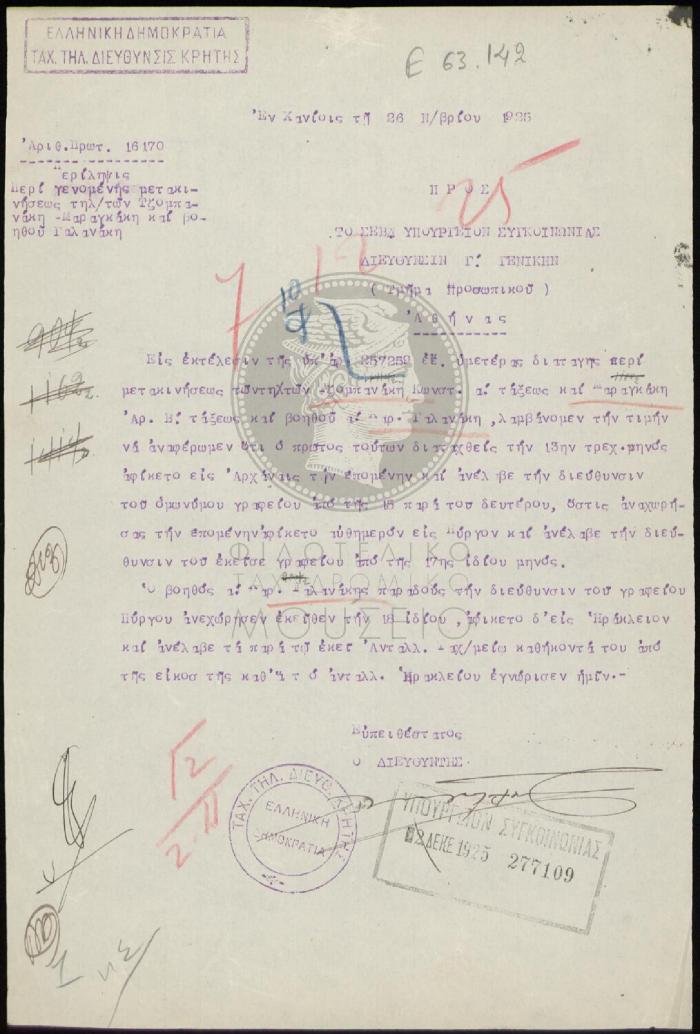 ΕΛΛΗΝΙΚΗ ΔΗΜΟΚΡΑΤΙΑ
ΤΑΧ. ΤΗΛ. ΔΙΕΥΘΥΝΣΙΣ ΚΡΗΤΗΣ
Ε 63.142
Ἐν Χανίοις τῇ 26 Ν/βρίου 1925
Ἀριθ.Πρωτ. 16170
Περίληψις
Περί γενομένης μετακι-
νήσεως τηλ/τῶν Τζομπα-
νάκη -Μαραγκάκη καί βο-
ηθοῦ Γαλανάκη
Π Ρ Ο Σ
25
ΤΟ ΣΕΒ. ΥΠΟΥΡΓΕΙΟΝ ΣΥΓΚΟΙΝΩΝΙΑΣ
ΔΙΕΥΘΥΝΣΙΝ Γ. ΓΕΝΙΚΗΝ
( Τμῆμα Προσωπικοῦ )
7 12
Ἀθήνας
Εἰς ἐκτέλεσιν τῆς ὑπ'ἀρ. 257259 ἐ.ἔ. ὑμετέρας διαταγῆς περί
μετακινήσεως τῶντηλτῶν Τζομπανάκη Κωνστ. α. τάξεως καί Μαραγκάκη
Ἀρ. Β. τάξεως καί βοηθοῦ α. Μαρ. Γαλανάκη ,λαμβάνομεν τήν τιμήν
νά ἀναφέρωμεν ὅτι ὁ πρῶτος τούτων διαταχθείς τήν 13ην τρεχ.μηνός
ἀφίκετο εἰς Ἀρχάναις τήν ἑπομένην καί ἀνέλαβε τήν διεύθυνσιν
τοῦ ὁμωνύμου γραφείου ἀπό τῆς 15 παρά τοῦ δευτέρου, ὅστις ἀναχωρή-
σας τήν ἑπομένηνἀφίκετο αὐθημερόν εἰς Πύργον καί ἀνέλαβε τήν διεύ-
θυνσιν τοῦ ἐκεῖσε γραφείου ἀπό τῆς 17ης ἰδίου μηνός.
Ὁ βοηθός α. Μαρ. Γαλανάκης παραδούς τήν διεύθυνσιν τοῦ γραφείου
Πύργου ἀνεχώρησεν ἐκεῖθεν τήν 18 ἰδίου ,ἀφίκετο δ'εἰς Ἡράκλειον
καί ἀνέλαβε τά παρά τῷ ἐκεῖ Ἀνταλλ. Ταχ/μείῳ καθήκοντά του ἀπό
τῆς εἰκοσ τῆς καθ'ἅ τ ό ἀνταλλ. Ἡρακλείου ἐγνώρισεν ἡμῖν.-
ΦΙΛΟΤΕΛΙΚΟ
ΤΑΧΥΔΡΟΜΙΚΟ
ΜΟΥΣΕΙΟ
Εὐπειθέστατος
Ο ΔΙΕΥΘΥΝΤΗΣ
ΤΑΧ. ΤΗΛ. ΔΙΕΥΘ. ΚΡΗΤΗΣ
ΕΛΛΗΝΙΚΗ
ΔΗΜΟΚΡΑΤΙΑ
ΥΠΟΥΡΓΕΙΟΝ ΣΥΓΚΟΙΝΩΝΙΑΣ
02 ΔΕΚΕ 1925 277109